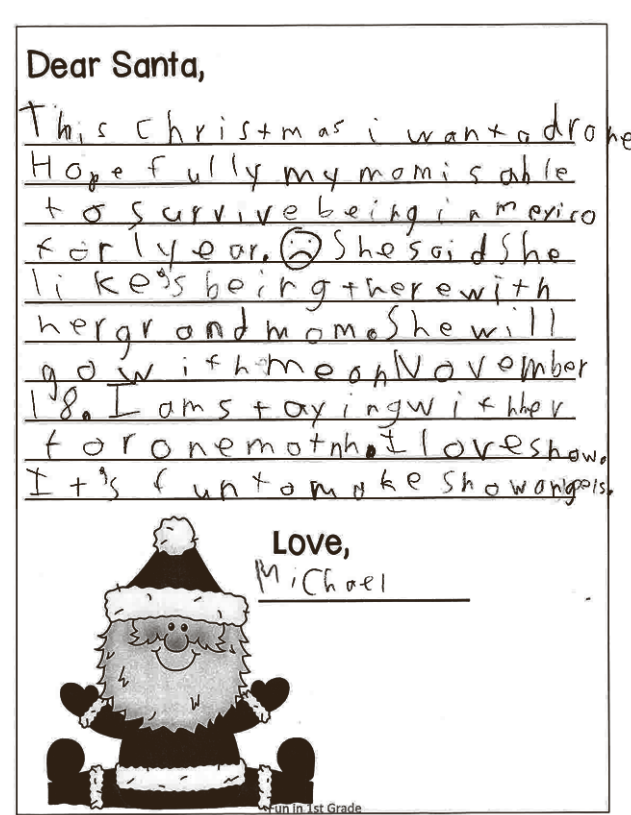 Dear Santa,
This christmas i want a drone
Hopefully my mom is able
to survive being in mexico
for 1 year. She said She
like's being there with
her grandmom. She will
go with me on November
18. I am staying with her
for one motnh. I love snow.
It's fun to make snow angels.
Love,
Michael
Fun in 1st Grade